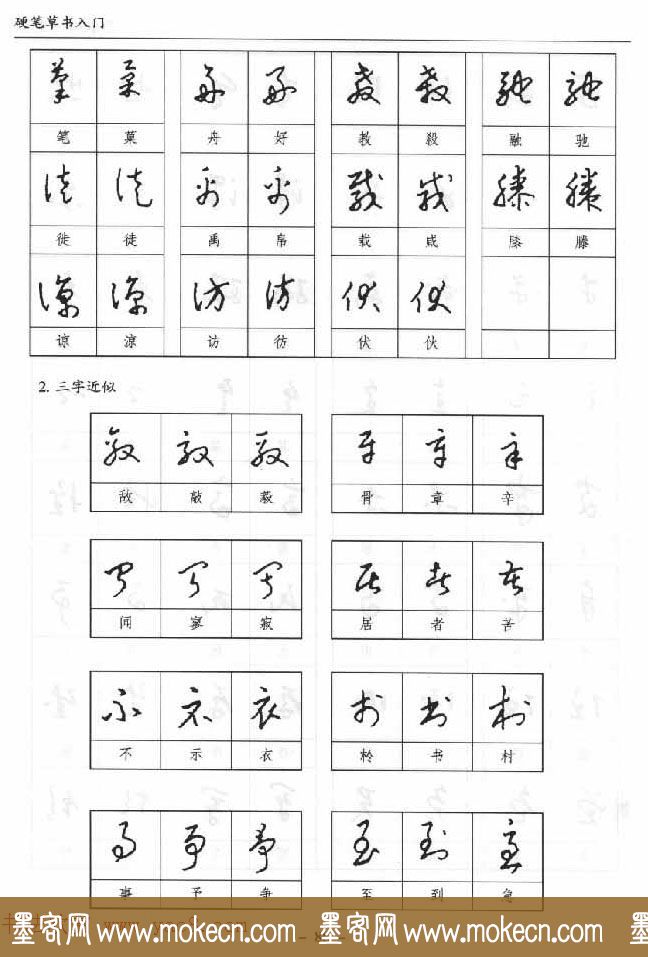 硬笔草书入门
笔 菓 舟 好 教 殺 融 驰
徙 徒 禹 帛 载 咸 膝 滕
谅 凉 访 彷 伏 伙
2. 三字近似
敌 敲 毅 骨 章 辛
闻 寥 寂 居 者 苦
不 示 衣 柃 书 村
事 予 争 至 到 急
墨客网 www.mokecn.com 墨客网 www.mokecn.com